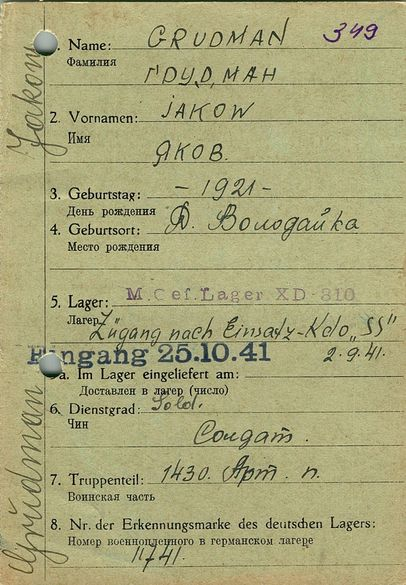 349
1. Name: GRUDMAN
Фамилия
ГРУДМАН
2. Vornamen: JAKOW
Имя
ЯКОВ.
3. Geburtstag: - 1921 -
День рождения
4. Geburtsort: Д. Володайка
Место рождения
5. Lager: M.Gef.Lager XD 310
Лагер
Zugang nach Einsatz-Kdo „SS"
Eingang 25.10.41
2.9.41.
5a. Im Lager eingeliefert am:
Доставлен в лагер (число)
6. Dienstgrad: Sold.
Чин
Солдат.
7. Truppenteil: 1430. Арт. п.
Воинская часть
8. Nr. der Erkennungsmarke des deutschen Lagers:
Номер военнопленного в германском лагере
11741.
Grudman Jakow